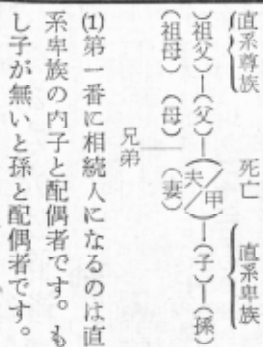 直系尊族
死亡
直系卑族
(祖父)―(父)―(夫/甲)―(子)―(孫)
(祖母) (母) (妻)
兄弟
(1)第一番に相続人になるのは直
系卑族の内子と配偶者です。も
し子が無いと孫と配偶者です。